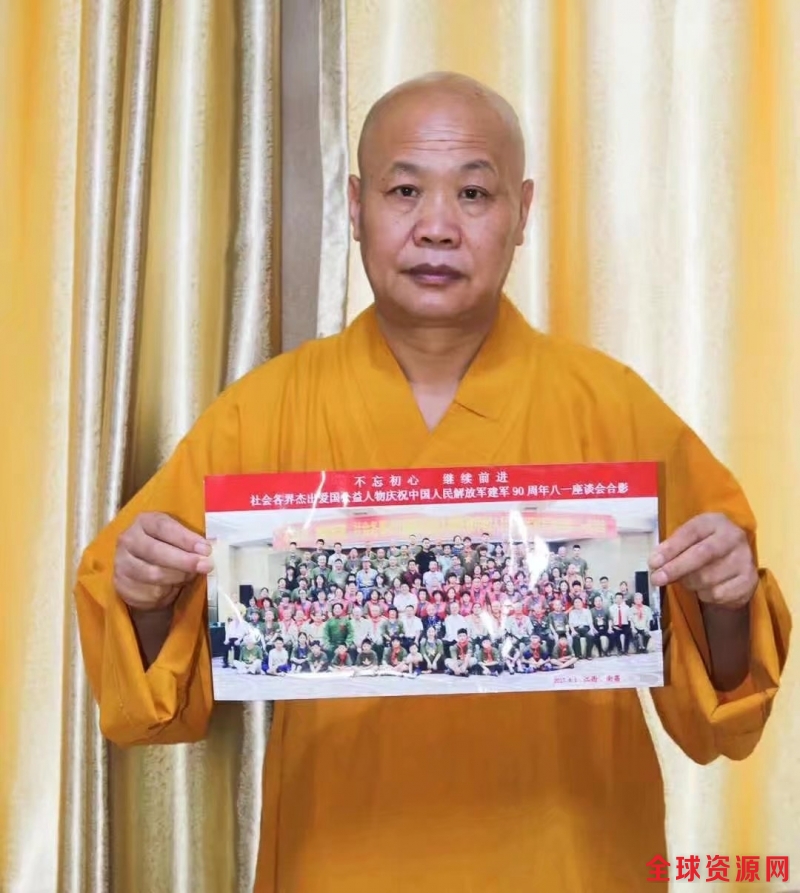 不忘初心 继续前进
社会各界杰出爱国公益人物庆祝中国人民解放军建军90周年八一座谈会合影
全球资源网